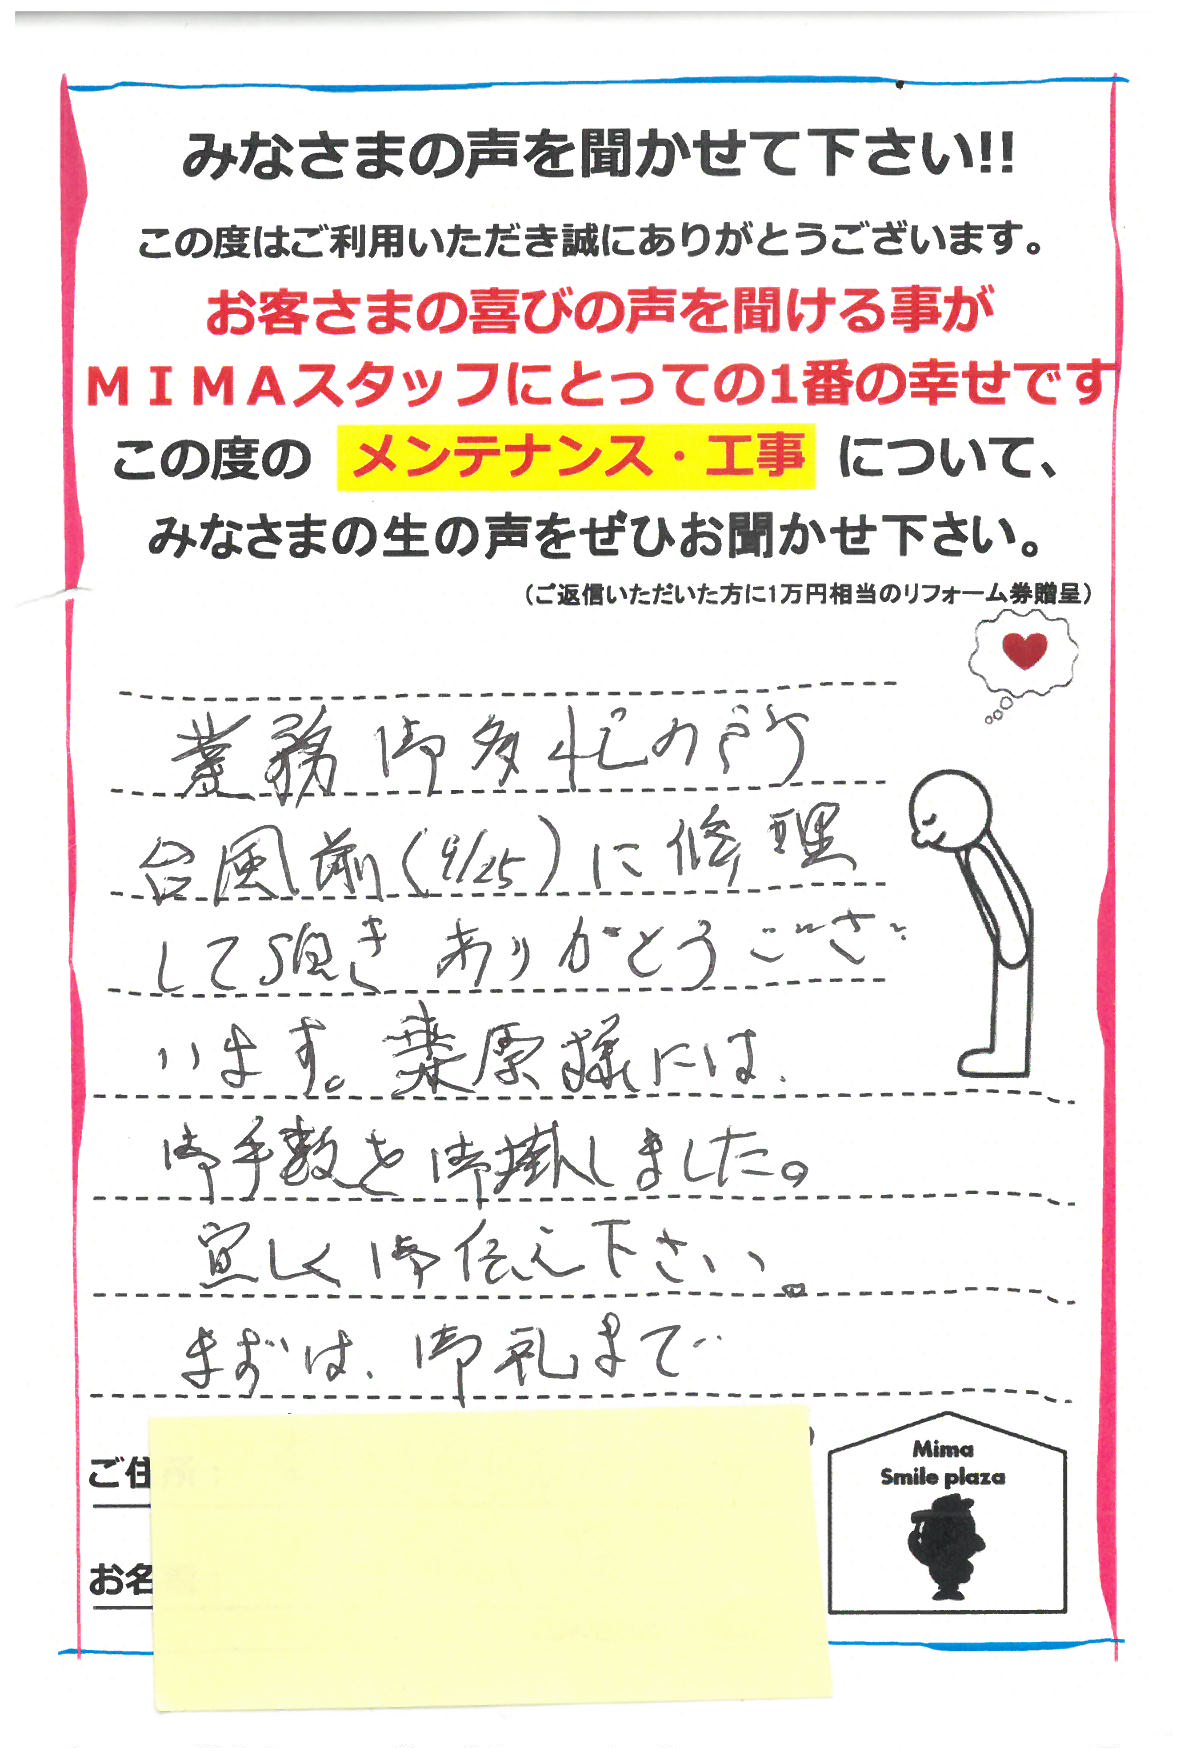 みなさまの声を聞かせて下さい!!
この度はご利用いただき誠にありがとうございます。
お客さまの喜びの声を聞ける事が
ＭＩＭＡスタッフにとっての1番の幸せです
この度の メンテナンス・工事 について、
みなさまの生の声をぜひお聞かせ下さい。
（ご返信いただいた方に1万円相当のリフォーム券贈呈）
業務御多忙の所
台風前(9/25)に修理
して頂きありがとうござ
います。桑原様には、
御手数を御掛しました。
宜しく御伝え下さい。
まずは、御礼まで
ご住
お名
Mima
Smile plaza